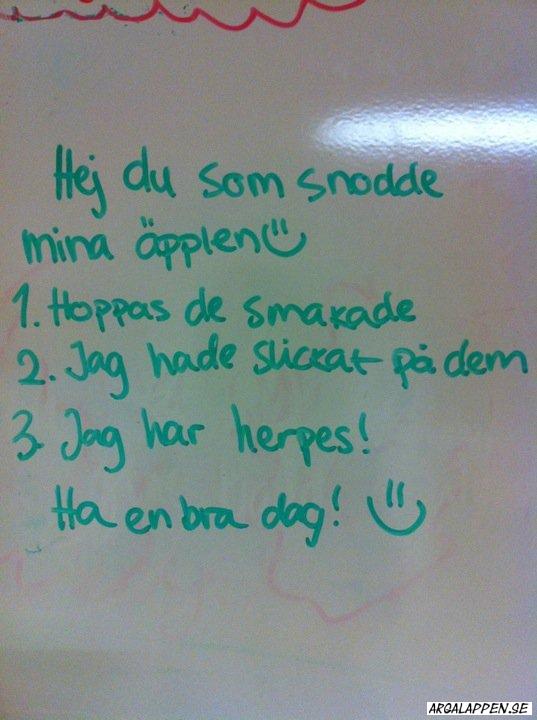 Hej du som snodde
mina äpplen
1. Hoppas de smakade
2. Jag hade slickat på dem
3. Jag har herpes!
Ha en bra dag!
ARGALAPPEN.SE